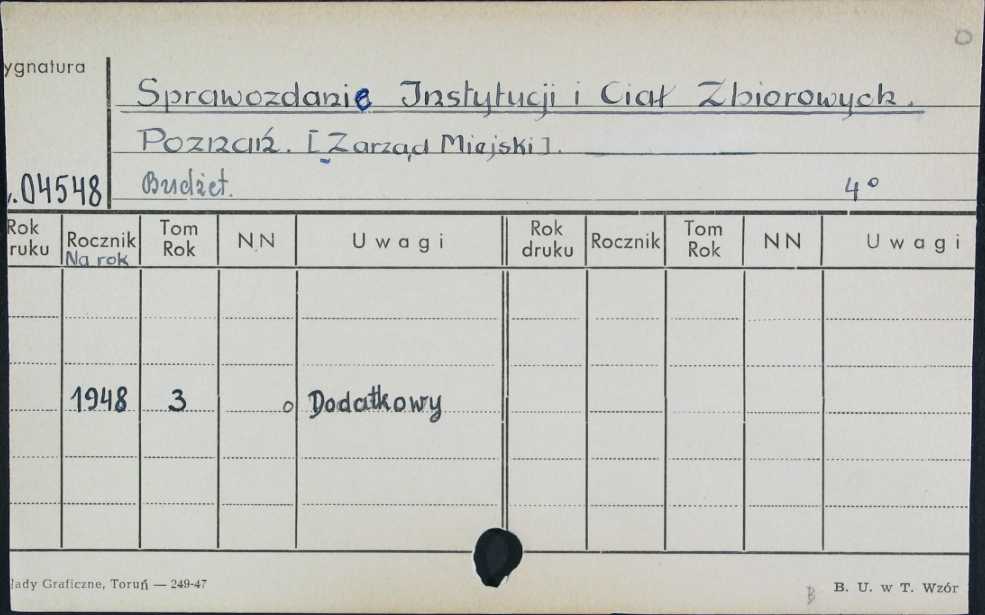 ygnatura
Sprawozdanie Instytucji i Ciał Zbiorowych.
Poznań. [Zarząd Miejski].
.04548 Budżet. 4°
Rok ruku Rocznik Na rok Tom Rok NN Uwagi Rok druku Rocznik Tom Rok NN Uwagi
1948 3 o Dodatkowy
łady Graficzne, Toruń — 249-47 B B. U. w T. Wzór